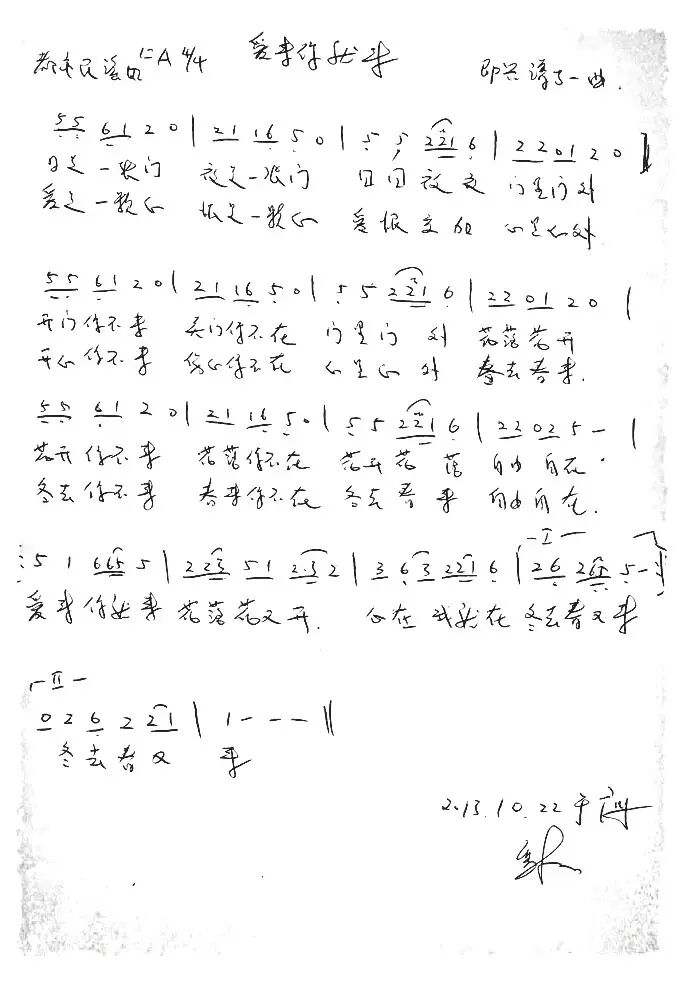 都市民谣风 1=A 4/4 爱来你就来 即兴谱了一曲.
5 5 6 1 2 0 | 2 1 1 6 5 0 | 5 5 2 2 1 6 | 2 2 0 1 2 0 ‖
日是一张门 夜是一张门 日日夜夜 门里门外
爱是一颗心 恨是一颗心 爱恨交加 心里心外
5 5 6 1 2 0 | 2 1 1 6 5 0 | 5 5 2 2 1 6 | 2 2 0 1 2 0 |
开门你不来 关门你不在 门里门外 花落花开
开心你不来 伤心你不在 心里心外 春去春来.
5 5 6 1 2 0 | 2 1 1 6 5 0 | 5 5 2 2 1 6 | 2 2 0 2 5 – |
花开你不来 花落你不在 花开花落 自由自在
冬去你不来 春来你不在 冬去春来 自由自在.
I
5 1 6 6 5 5 | 2 2 3 5 1 2·3 2 | 3 6 3 2 2 1 6 | 2 6 2 6 5 5 –
爱来你就来 花落花又开. 心在我就在 冬去春又来
II
0 2 6 2 2 1 | 1 – – – ‖
冬去春又来
2.13.10.22于广州